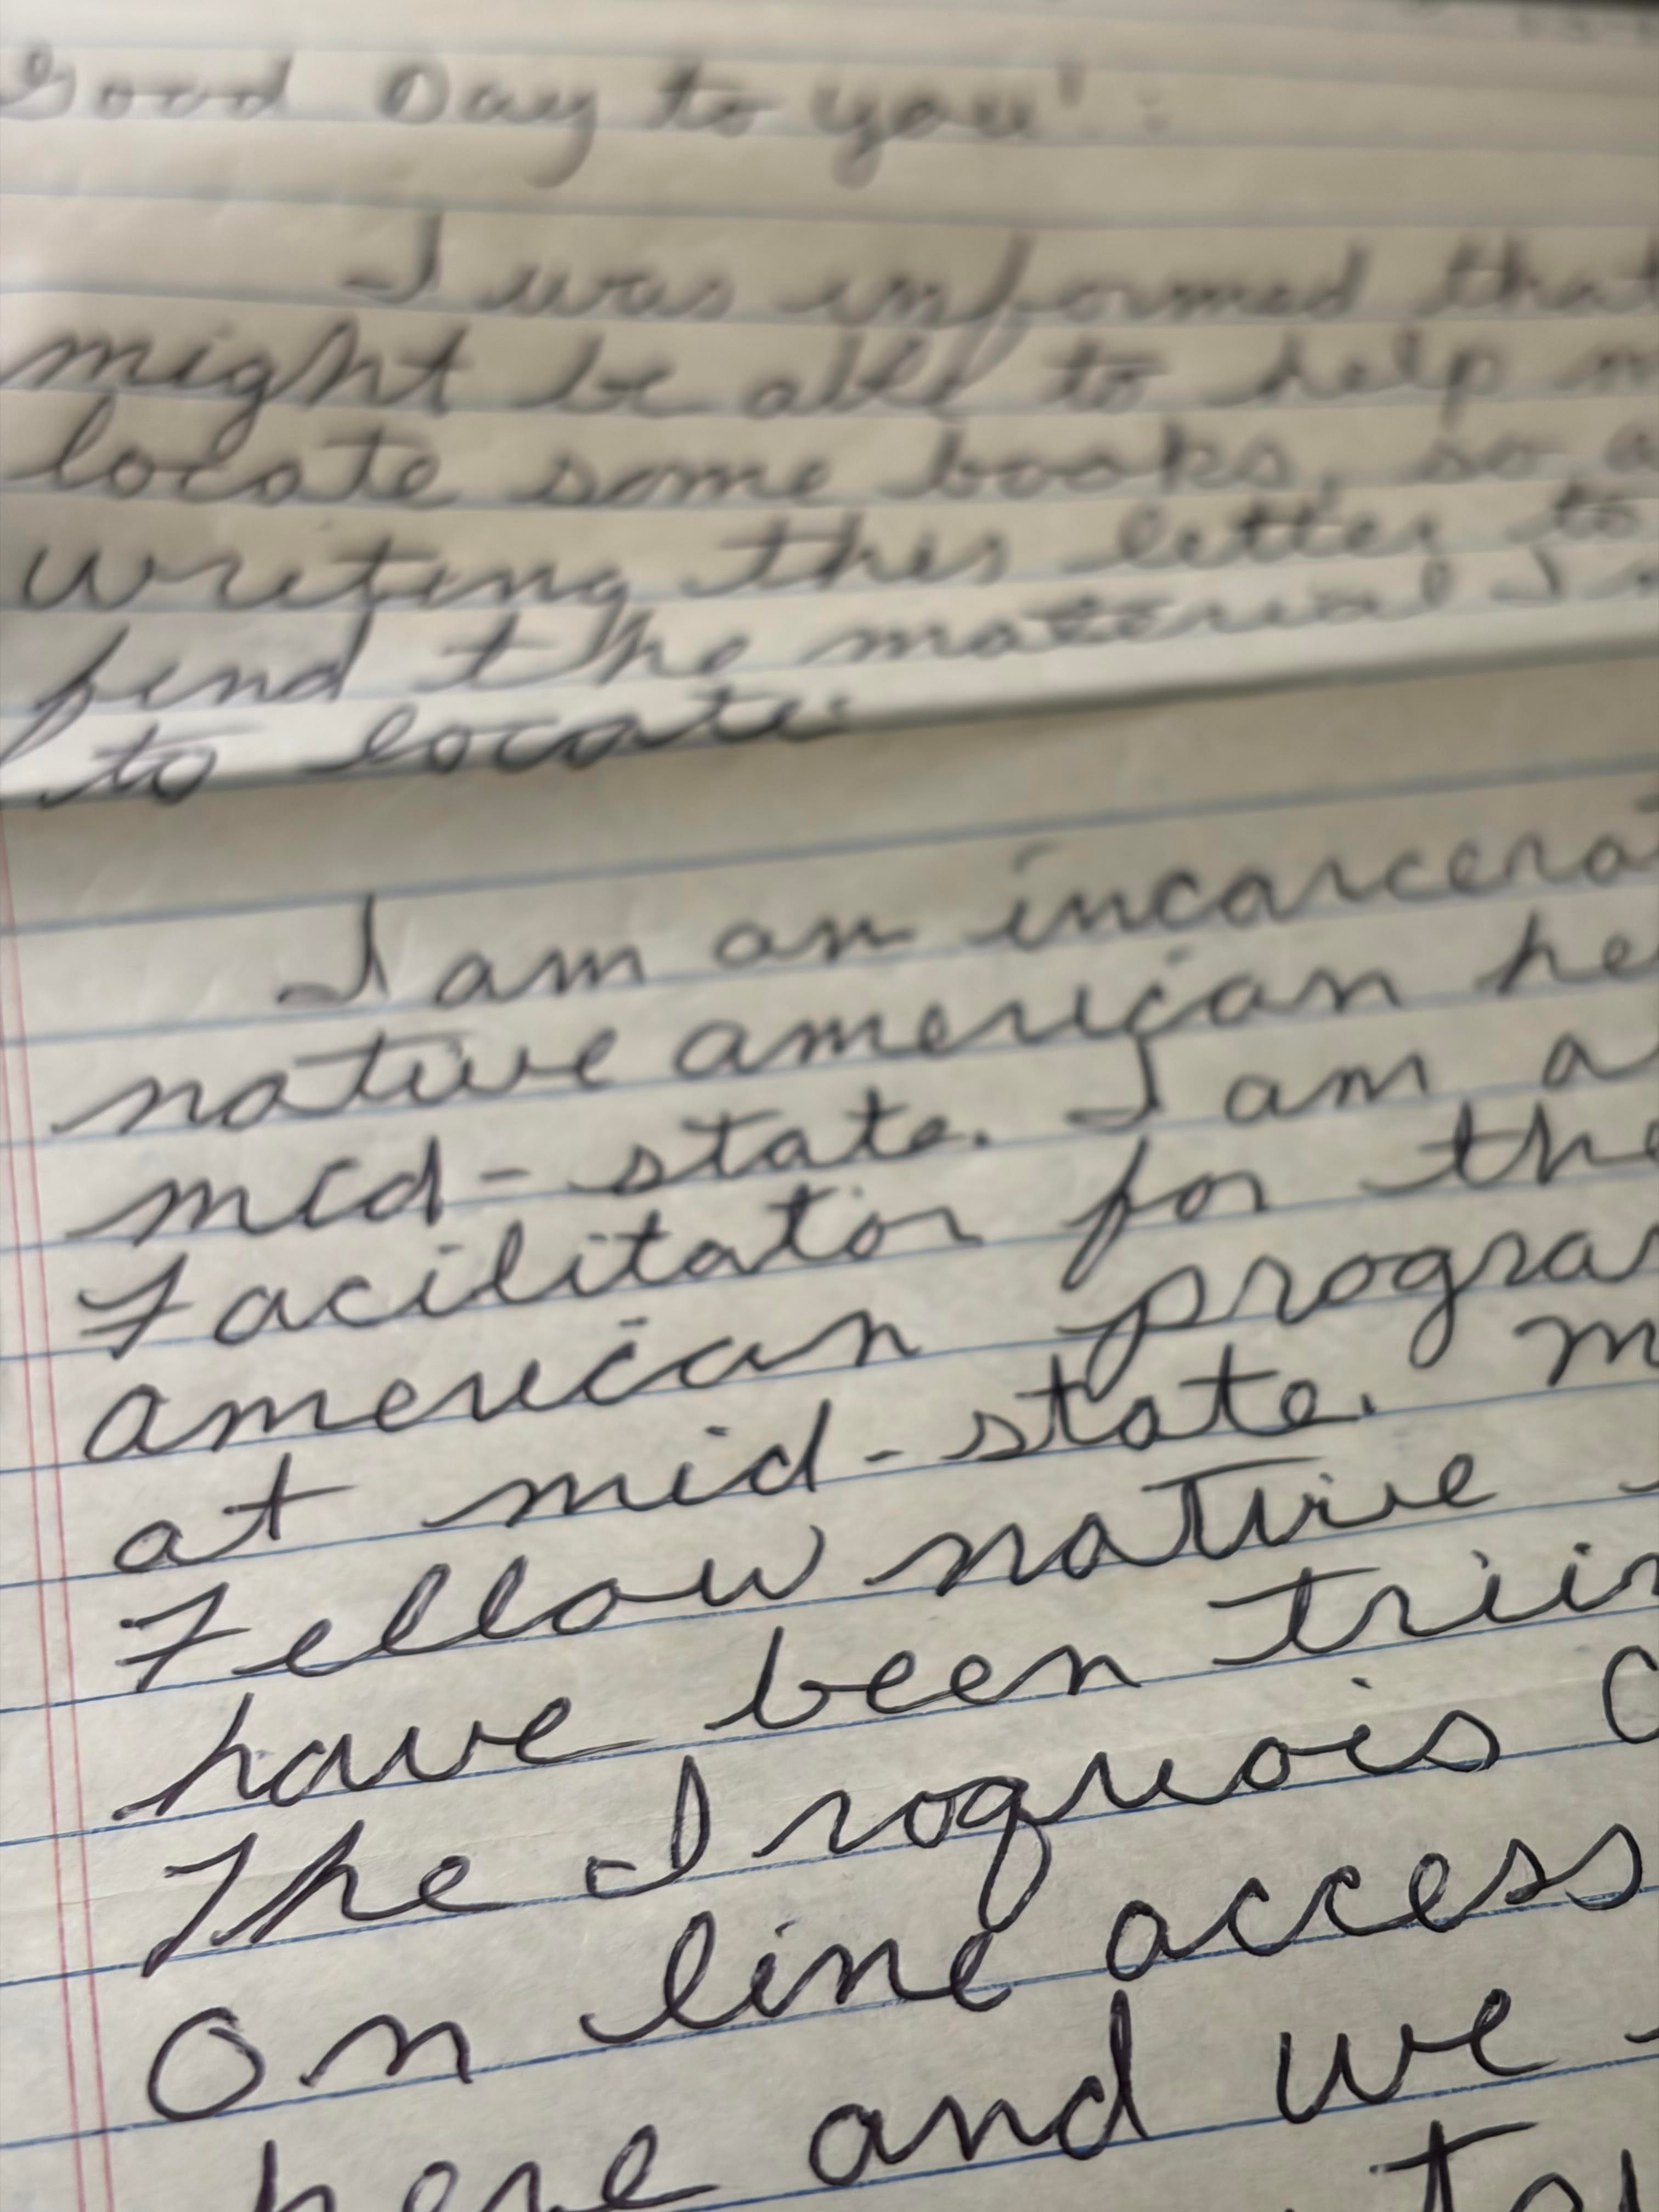 Good Day to you!:
I was informed that
might be able to help
locate some books, so
writing this letter to
find the material I
to locate.
I am an incarcera
native american he
mid-state. I am a
Facilitator for the
american progra
at mid-state. m
Fellow native
have been triin
The Iroquois C
On line access
here and we